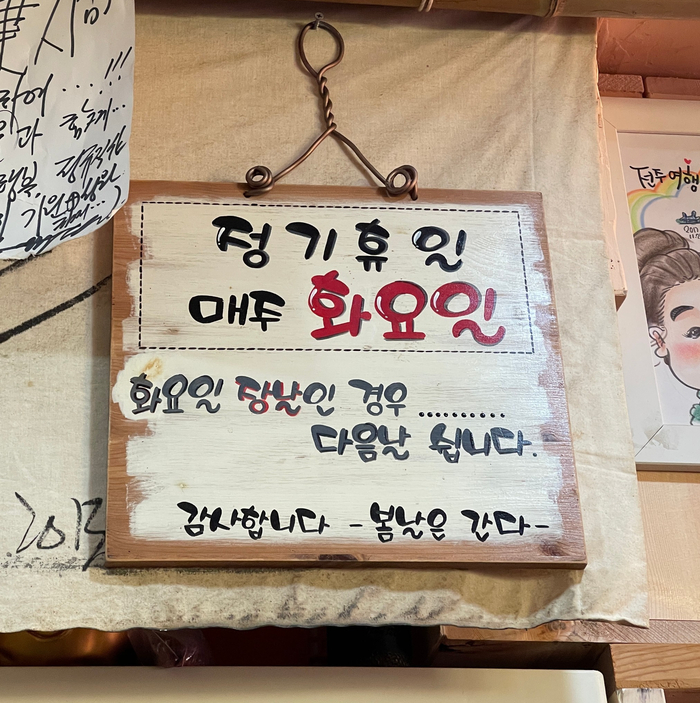 정기휴일
매주 화요일
화요일 장날인 경우..........
다음날 쉽니다.
감사합니다 -봄날은 간다-
2013
전주여행